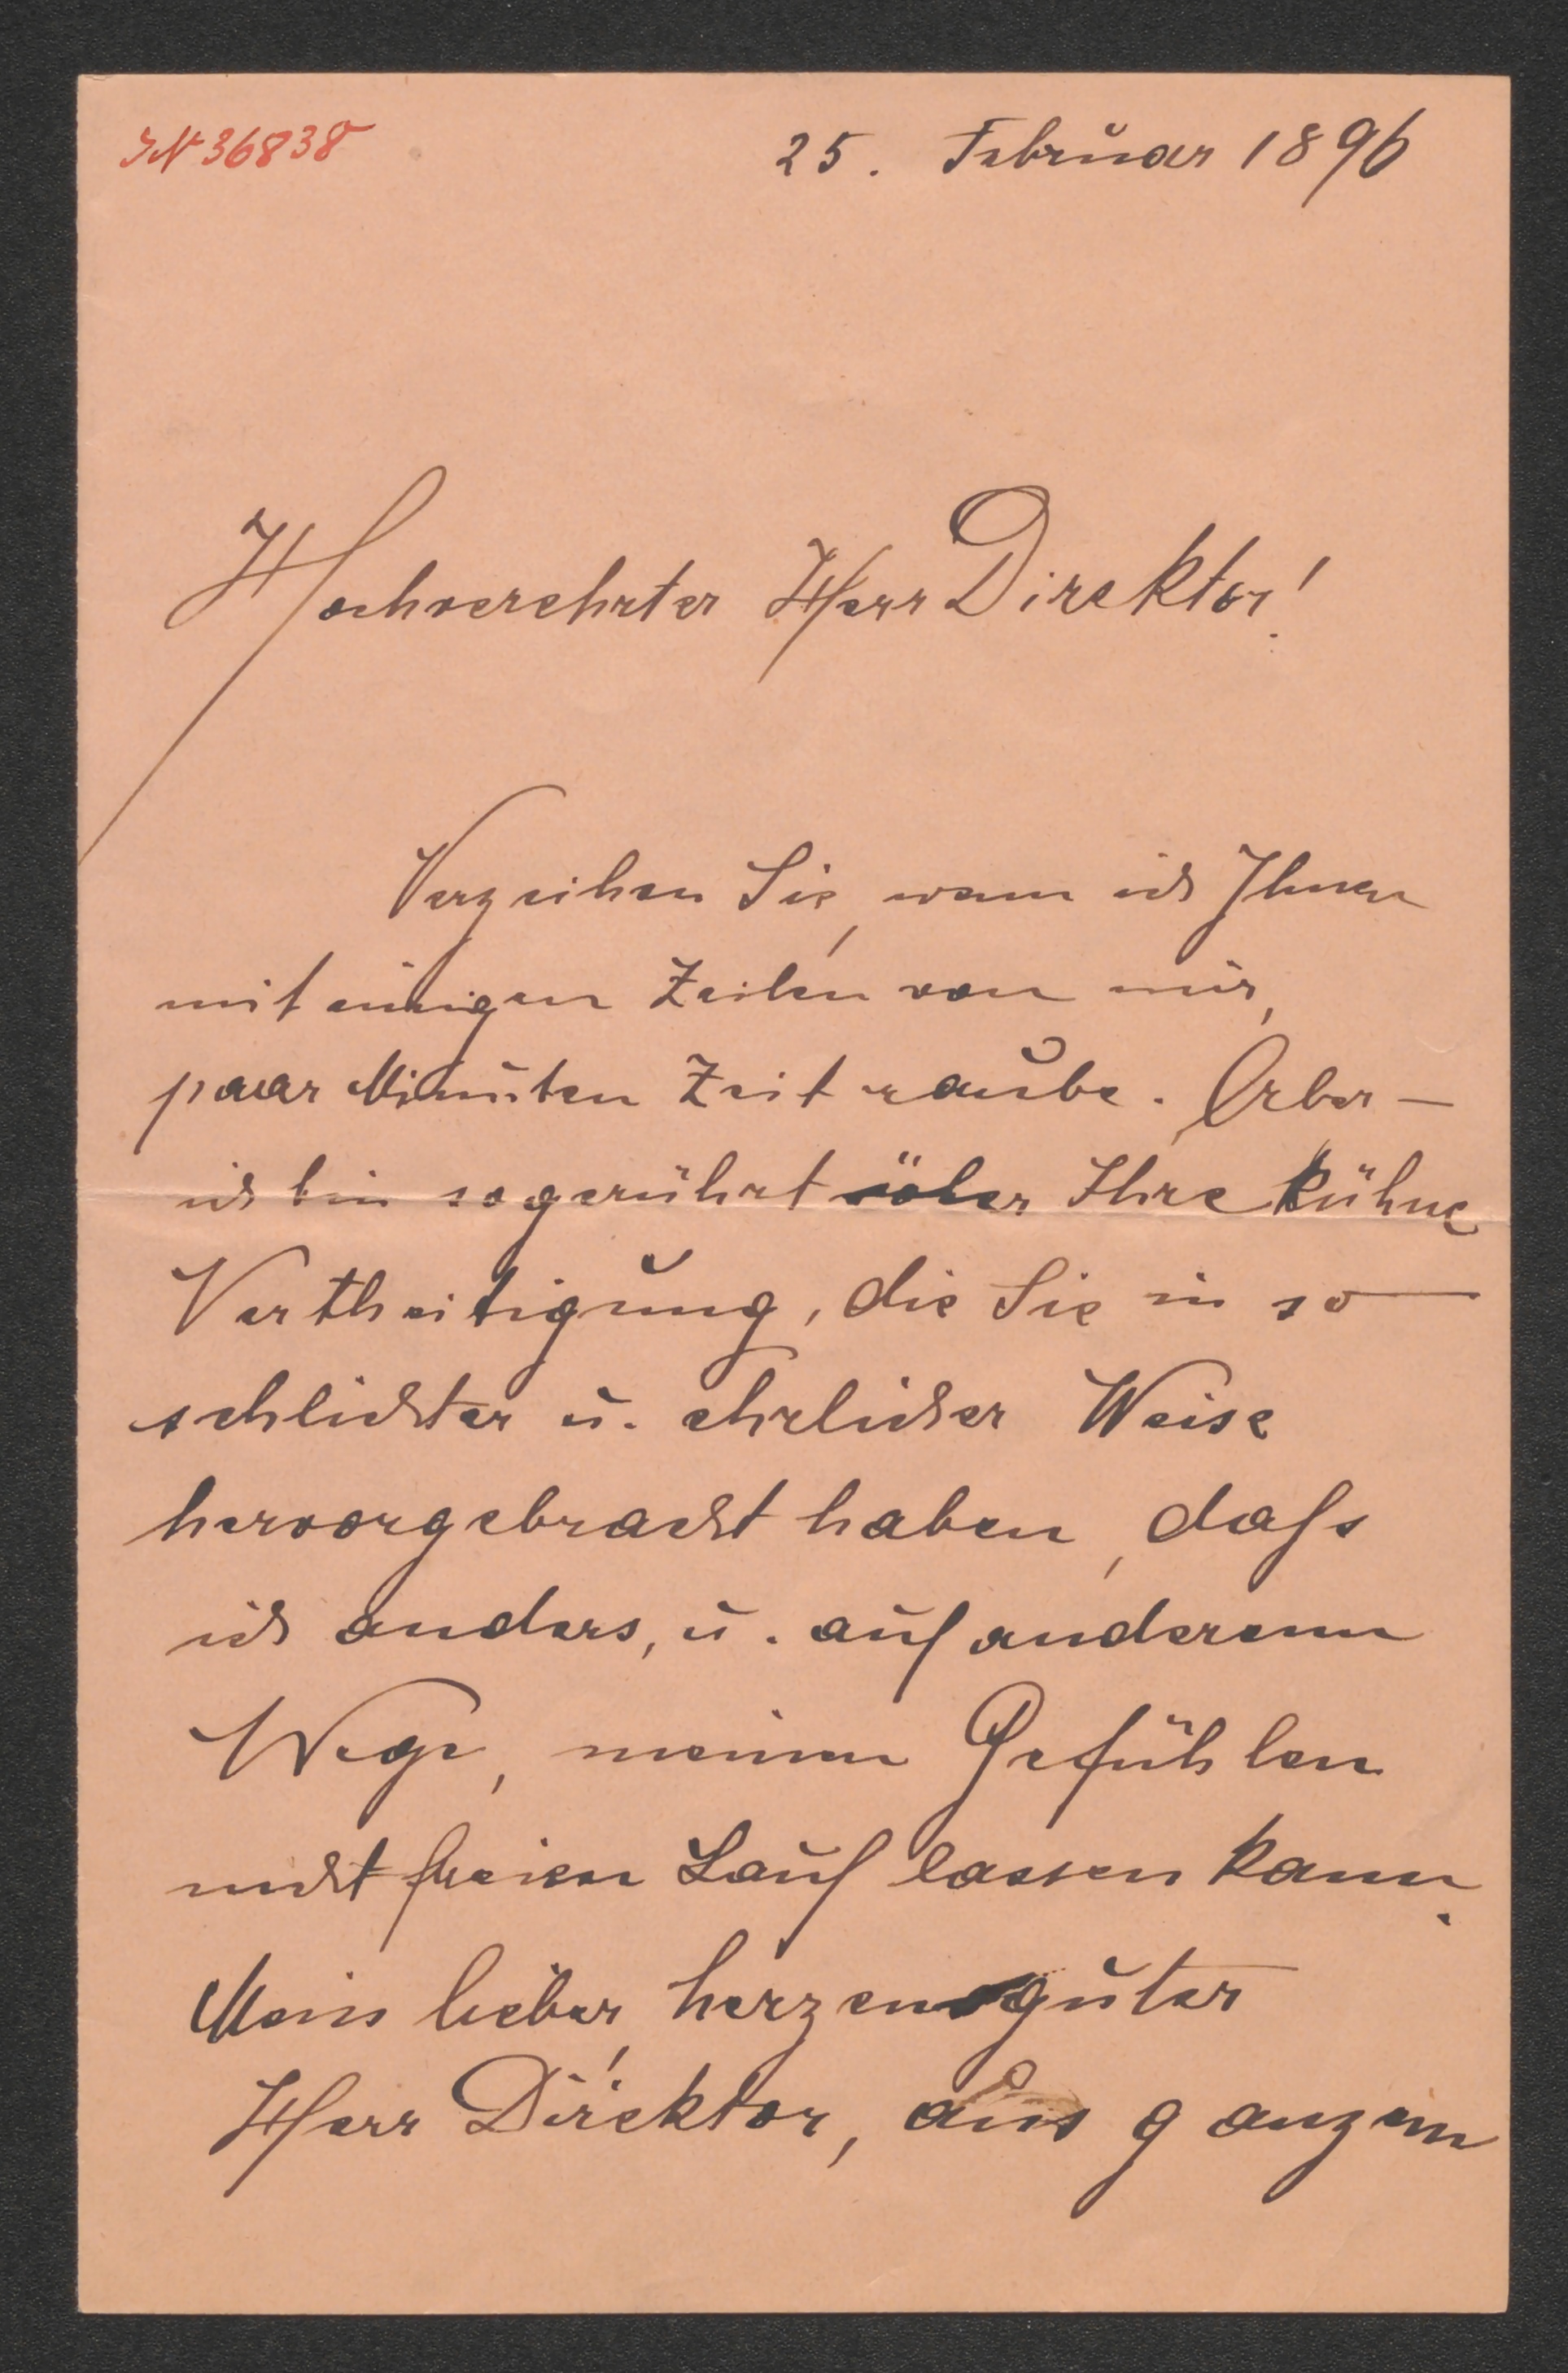 IN 36838
25. Februar 1896
Hochverehrter Herr Direktor!
Verzeihen Sie, wenn ich Ihnen
mit einigen Zeilen von mir,
paar Minuten Zeit raube. Aber —
ich bin so gerührt über Ihre kühne
Vertheitigung, die Sie in so
schlichter u. ehrlicher Weise
hervorgebracht haben, dass
ich anders, u. auf anderenn
Wege, meinen Gefühlen
nicht freien Lauf lassen kann.
Mein lieber, herzensguter
Herr Direktor, aus ganzem